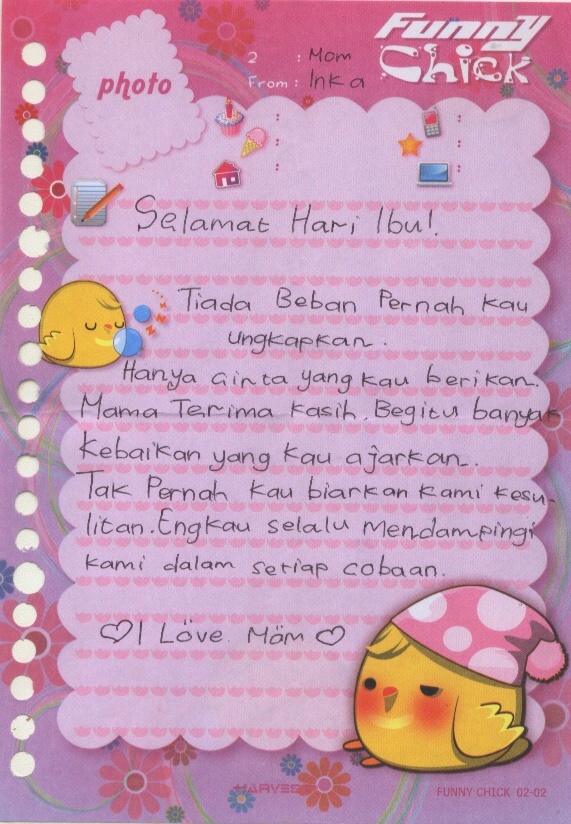 Funny
Chick
photo
2 : Mom
From : Inka
Selamat Hari Ibu!
Tiada Beban Pernah kau
ungkapkan.
Hanya Cinta yang kau berikan.
Mama Terima kasih. Begitu banyak
kebaikan yang kau ajarkan.
Tak Pernah kau biarkan kami kesu-
litan. Engkau selalu Mendampingi
kami dalam setiap cobaan.
♡ I Löve Möm ♡
HARVEST
FUNNY CHICK 02-02